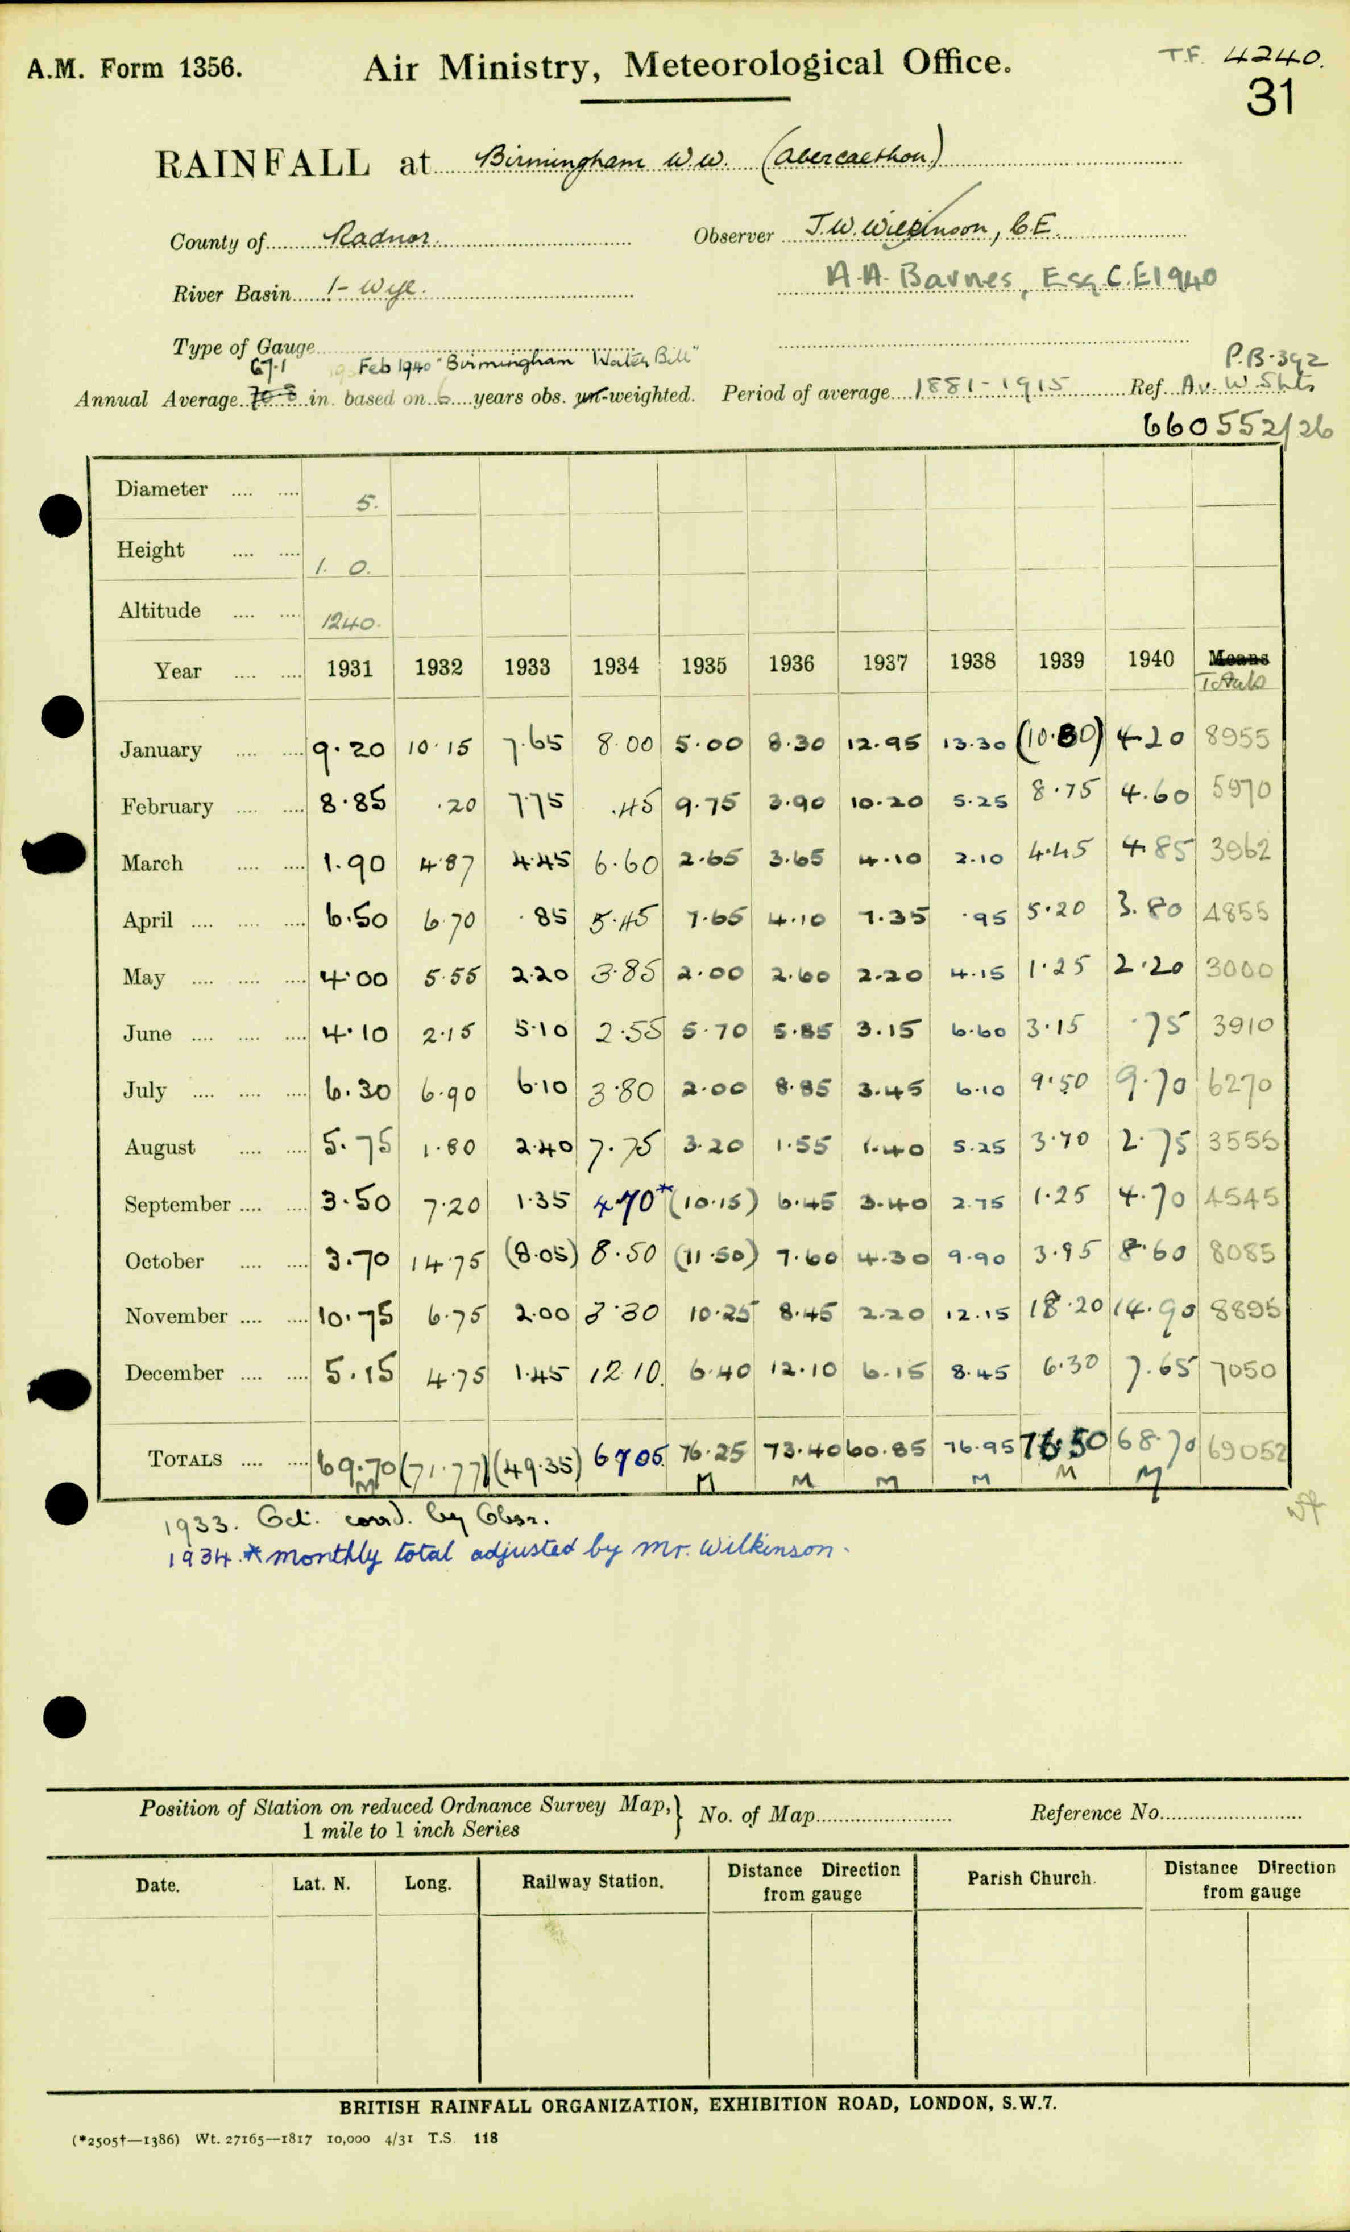 A.M. Form 1356. Air Ministry, Meteorological Office. T.F. 4240.
31
RAINFALL at Birmingham W.W. (Abercaethon)
County of Radnor. Observer J.W. Wilkinson, C.E.
River Basin 1- Wye. A.A. Barnes, Esq. C.E 1940
Type of Gauge
67.1 Feb 1940 "Birmingham Water Bill" P.B-392
Annual Average 70.8 in. based on 6 years obs. un-weighted. Period of average 1881-1915 Ref. Av. W. Shts
660552/26
Diameter .... .... 5.
Height .... .... 1. 0.
Altitude .... .... 1240.
Year .... .... 1931 1932 1933 1934 1935 1936 1937 1938 1939 1940 Means
Totals
January .... .... 9.20 10.15 7.65 8.00 5.00 8.30 12.95 13.30 (10.80) 4.20 8955
February .... .... 8.85 .20 7.75 .45 9.75 3.90 10.20 5.25 8.75 4.60 5970
March .... .... 1.90 4.87 4.45 6.60 2.65 3.65 4.10 2.10 4.45 4.85 3962
April .... .... .... 6.50 6.70 .85 5.45 7.65 4.10 7.35 .95 5.20 3.80 4855
May .... .... .... 4.00 5.55 2.20 3.85 2.00 2.60 2.20 4.15 1.25 2.20 3000
June .... .... .... 4.10 2.15 5.10 2.55 5.70 5.85 3.15 6.60 3.15 .75 3910
July .... .... .... 6.30 6.90 6.10 3.80 2.00 8.85 3.45 6.10 9.50 9.70 6270
August .... .... 5.75 1.80 2.40 7.75 3.20 1.55 1.40 5.25 3.70 2.75 3555
September .... .... 3.50 7.20 1.35 4.70* (10.15) 6.45 3.40 2.75 1.25 4.70 4545
October .... .... 3.70 14.75 (8.05) 8.50 (11.50) 7.60 4.30 9.90 3.95 8.60 8085
November .... .... 10.75 6.75 2.00 3.30 10.25 8.45 2.20 12.15 18.20 14.90 8895
December .... .... 5.15 4.75 1.45 12.10. 6.40 12.10 6.15 8.45 6.30 7.65 7050
TOTALS .... .... 69.70 (71.77) (49.35) 67.05 76.25 73.40 60.85 76.95 76.50 68.70 69052
M M M M M M M
1933. Oct. corrd. by Obsr.
1934. * monthly total adjusted by Mr. Wilkinson.
Position of Station on reduced Ordnance Survey Map,} No. of Map Reference No.
1 mile to 1 inch Series
Date. Lat. N. Long. Railway Station. Distance Direction Parish Church. Distance Direction
from gauge from gauge
BRITISH RAINFALL ORGANIZATION, EXHIBITION ROAD, LONDON, S.W.7.
(*2505†—1386) Wt. 27165—1817 10,000 4/31 T.S. 118